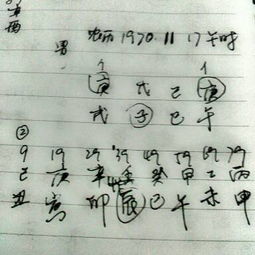 男 农历1970.11 17午时
庚 戊 己 庚
戌 子 巳 午
②
9 19 29 39 49 59 69 79
己 庚 辛 壬 癸 甲 乙 丙
丑 寅 卯 辰 巳 午 未 申